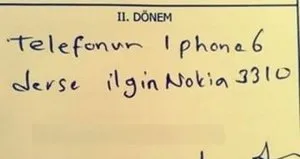 II. DÖNEM
Telefonun Iphone6
derse ilgin Nokia 3310